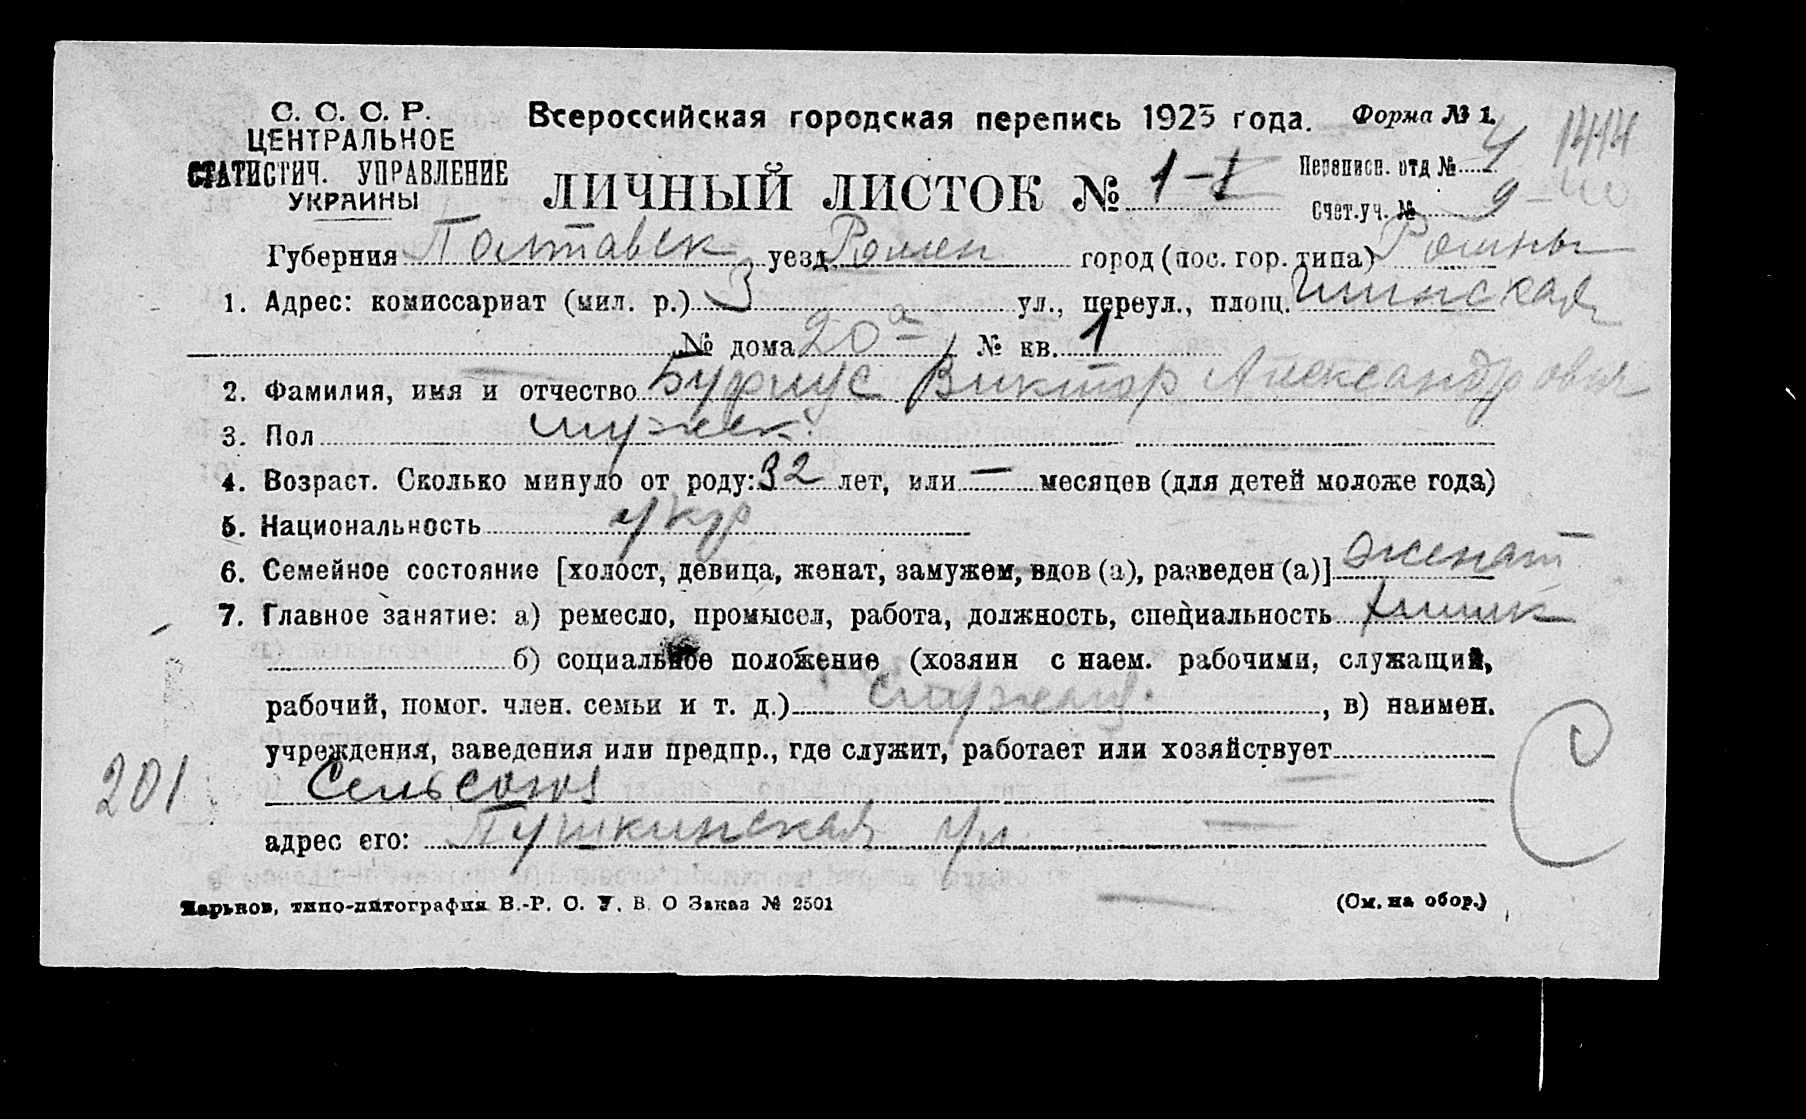 С. С. С. Р.
ЦЕНТРАЛЬНОЕ
СТАТИСТИЧ. УПРАВЛЕНИЕ
УКРАИНЫ
Всероссийская городская перепись 1923 года.
Форма № 1.
1414
ЛИЧНЫЙ ЛИСТОК № 1-1
Переписн. отд № 4
Счет.уч. № 9
Губерния Полтавск уезд Ромен город (пос. гор. типа) Ромны
1. Адрес: комиссариат (мил. р.) 3 ул., переул., площ.
№ дома 20а № кв. 1
2. Фамилия, имя и отчество Виктор Александрович
3. Пол мужск.
4. Возраст. Сколько минуло от роду: 32 лет, или — месяцев (для детей моложе года)
5. Национальность укр
6. Семейное состояние [холост, девица, женат, замужем, вдов (а), разведен (а)] женат
7. Главное занятие: а) ремесло, промысел, работа, должность, специальность химик
б) социальное положение (хозяин с наем. рабочими, служащий,
рабочий, помог. член. семьи и т. д.) служащ. , в) наимен.
учреждения, заведения или предпр., где служит, работает или хозяйствует
201
Сельсоюз
С
адрес его: Пушкинская ул.
Харьков, типо-литография В.-Р. О. У. В. О Заказ № 2501
(См. на обор.)